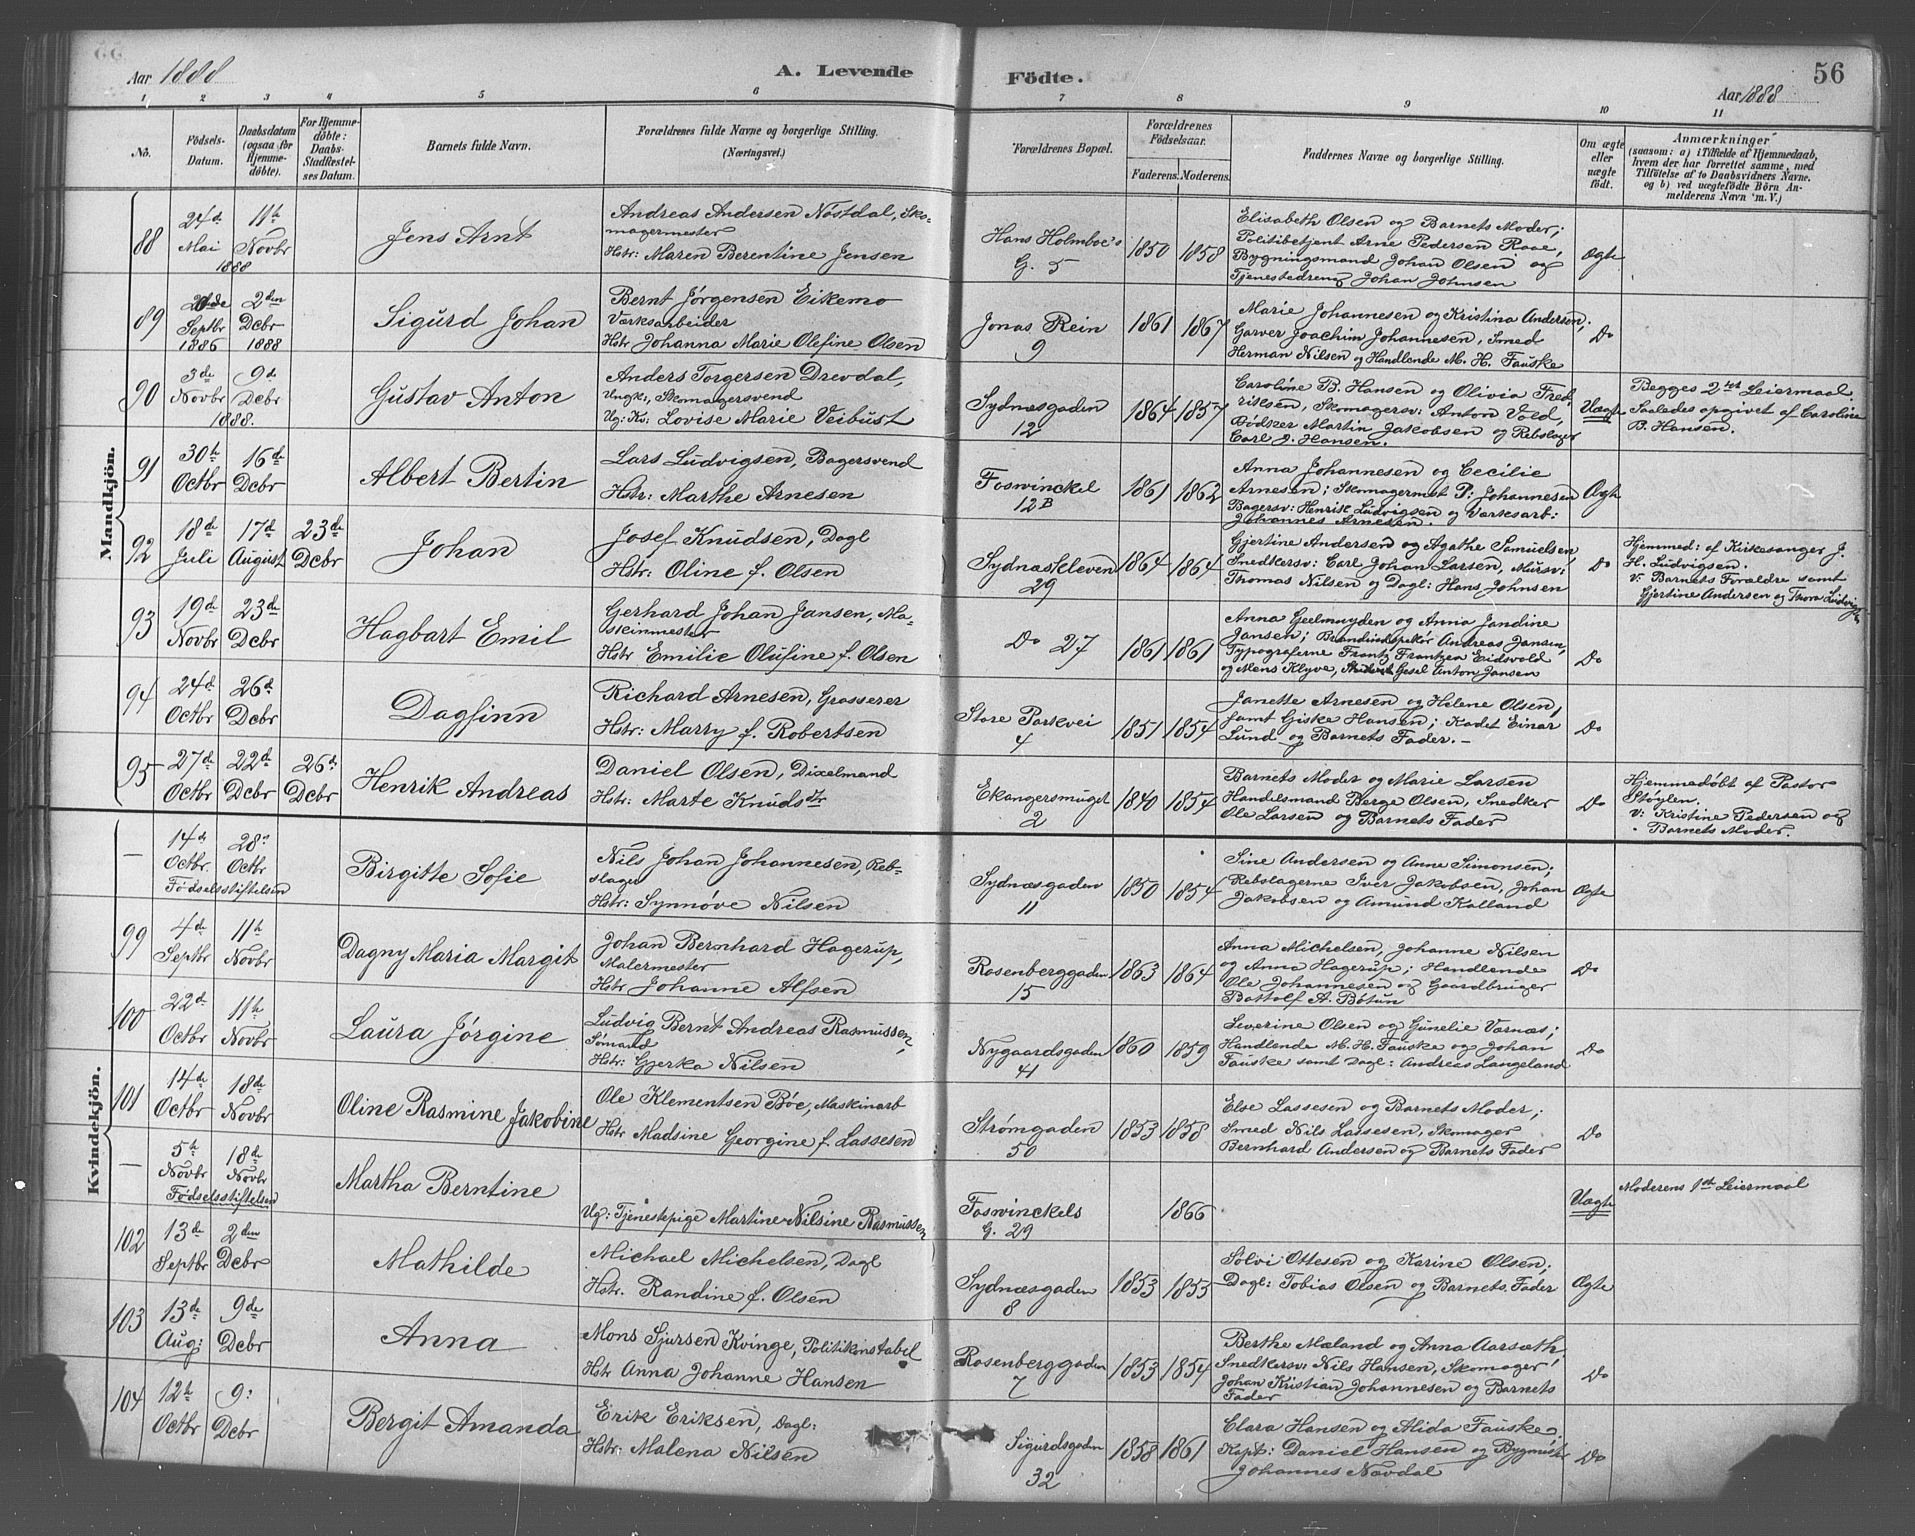 Aar 1888
A. Levende Födte.
56
Aar 1888
1 2 3 4 5 6 7 8 9 10 11
No.
Födsels-Datum.
Daabsdatum (ogsaa for Hjemme-döbte).
For Hjemme-döbte: Daabs-Stadfæstel-ses Datum.
Barnets fulde Navn.
Forældrenes fulde Navne og borgerlige Stilling. (Næringsvei.)
Forældrenes Bopæl.
Forældrenes Födselsaar.
Faderens. Moderens.
Faddernes Navne og borgerlige Stilling.
Om ægte eller uægte födt.
Anmærkninger
(saasom: a) i Tilfælde af Hjemmedaab, hvem der har forrettet samme, med Tilföielse af to Daabsvidners Navne. og b) ved uægtefödte Börn An-melderens Navn m. V.)
Mandkjön.
88
24d Mai 11te Novbr 1888
Jens Arnt
Andreas Andersen Nöstdal, Sko-
magermester
Hstr: Maren Berentine Jensen
Hans Holmboe's
G. 5
1850 1858
Elisabeth Olsen og Barnets Moder;
Politibetjent Arne Pedersen Raae,
Bygningsmand Johan Olsen og
Tjenestedreng Johan Johnsen
Ægte
89
Septbr 1886 2den Dcbr 1888
Sigurd Johan
Bernt Jörgensen Eikemo
Værksarbeider
Hstr Johanna Marie Olefine Olsen
Jonas Rein
9
1861 1867
Marie Johannesen og Kristina Andersen;
Garver Joachim Johannesen, Smed
Herman Nilsen og Handlende M. H. Fauske
Do
90
3de Novbr 9de Dcbr 1888.
Gustav Anton
Anders Torgersen Drevdal,
Ungk:, Skomagersvend
Ug: Kv: Lovise Marie Veibust
Sydnæsgaden
12
1864 1857
Caroline B. Hansen og Olivia Fred-
riksen, Skomagersv: Anton Vold,
Bödker Martin Jakobsen og Rebslager
Carl J. Hansen.
Uægte
Begges 2det Leiermaal.
Saaledes opgivet af Caroline
B. Hansen.
91
30te Octbr 16de Dcbr
Albert Bertin
Lars Ludvigsen, Bagersvend
Hstr: Marthe Arnesen
Foswinckel
12B
1861 1862
Anna Johannesen og Cecilie
Arnesen; Skomagermst P: Johannesen
Bagersv: Henrik Ludvigsen og Værksarb:
Johannes Arnesen.
Ægte
92
18de Juli 17de August 23de Dcbr
Johan
Josef Knudsen, Dagl
Hstr: Oline f. Olsen
Sydnæskleven
29
1864 1864
Gjertine Andersen og Agathe Samuelsen,
Snedkersv: Carl Johan Larsen, Mursv:
Thomas Nilsen og Dagl: Hans Johnsen
Do
Hjemmed: af Kirkesanger J.
H. Ludvigsen.
v. Barnets Forældre samt
Gjertine Andersen og Thora Ludvigs
93
19de Novbr 23de Dcbr
Hagbart Emil
Gerhard Johan Jansen, Ma-
skinmester
Hstr Emilie Olufine f. Olsen
Do 27
1861 1861
Anna Geelmuyden og Anna Jandine
Jansen; Andreas Jansen,
Typograferne Frantz Frantzen Eidsvold
og Mons Klyve, Gesel Anton Jansen
Do
94
24de Octbr 26de Dcbr
Dagfinn
Richard Arnesen, Grosserer
Hstr: Marry f. Robertsen
Store Parkvei
4
1851 1854
Janette Arnesen og Helene Olsen,
samt Giske Hansen; Kadet Einar
Lund og Barnets Fader. -
Do
95
27de Octbr 22de Dcbr 26de Dcbr
Henrik Andreas
Daniel Olsen, Dixelmand
Hstr: Marte Knudsdtr
Ekangersmuget
2
1840 1854
Barnets Moder og Marie Larsen
Handelsmand Berge Olsen, Snedker
Ole Larsen og Barnets Fader
Do
Hjemmedöbt af Pastor
Stöylen.
v: Kristine Pedersen og
Barnets Moder.
Kvindekjön.
—
14de Octbr. 28: Octbr
Födselsstiftelsen
Birgitte Sofie
Nils Johan Johannesen, Reb-
slager
Hstr: Synnöve Nilsen
Sydnæsgaden
11
1850 1854
Sine Andersen og Anne Simonsen;
Rebslagerne Iver Jakobsen, Johan
Jakobsen og Amund Kalland
Ægte
99
4de Septbr 11te Novbr
Dagny Maria Margit
Johan Bernhard Hagerup,
Malermester
Hstr Johanne Alfsen
Rosenberggaden
15
1863 1864
Anna Michelsen, Johanne Nilsen
og Anna Hagerup; Handlende
Ole Johannesen og Gaardbruger
Bottolf A. Bötun
Do
100
22de Octbr 11te Novbr
Laura Jörgine
Ludvig Bernt Andreas Rasmussen,
Sömand
Hstr: Gjerka Nilsen
Nygaardsgaden
41
1860 1859
Severine Olsen og Gunelie Varnæs;
Handlende M. H. Fauske og Johan
Fauske samt Dagl: Andreas Langeland
Do
101
14de Octbr 18de Novbr
Oline Rasmine Jakobine
Ole Klementsen Böe, Maskinarb
Hstr Madsine Georgine f. Lassesen
Strömgaden
50
1853 1858
Else Lassesen og Barnets Moder;
Smed Nils Lassesen, Skomager
Bernhard Andersen og Barnets Fader
Do
—
5te Novbr 18de Novbr
Födselsstiftelsen
Martha Berntine
Ug: Tjenestepige Martine Nilsine Rasmussen
Foswinckels
G. 29
1866
Uægte
Moderens 1ste Leiermaal
102
13de Septbr 2den Dcbr
Mathilde
Michael Michelsen, Dagl
Hstr. Randine f. Olsen
Sydnæsgaden
8
1853 1855
Sölvi Ottesen og Karine Olsen;
Dagl: Tobias Olsen og Barnets Fader
Ægte
103
13de Aug: 9de Dcbr
Anna
Mons Sjursen Kvinge, Politikonstabel
Hstr Anna Johanne Hansen
Rosenberggaden
7
1853 1854
Berthe Mæland og Anna Aarsæth,
Snedkersv: Nils Hansen, Skomager
Johan Kristian Johannesen og Barnets
Fader
Do
104
12te Octbr 9: Dcbr
Bergit Amanda
Erik Eriksen, Dagl:
Hstr: Malena Nilsen
Sigurdsgaden
32
1858 1861
Clara Hansen og Alida Fauske;
Kapt: Daniel Hansen og Bygmester
Johannes Navdal
Do